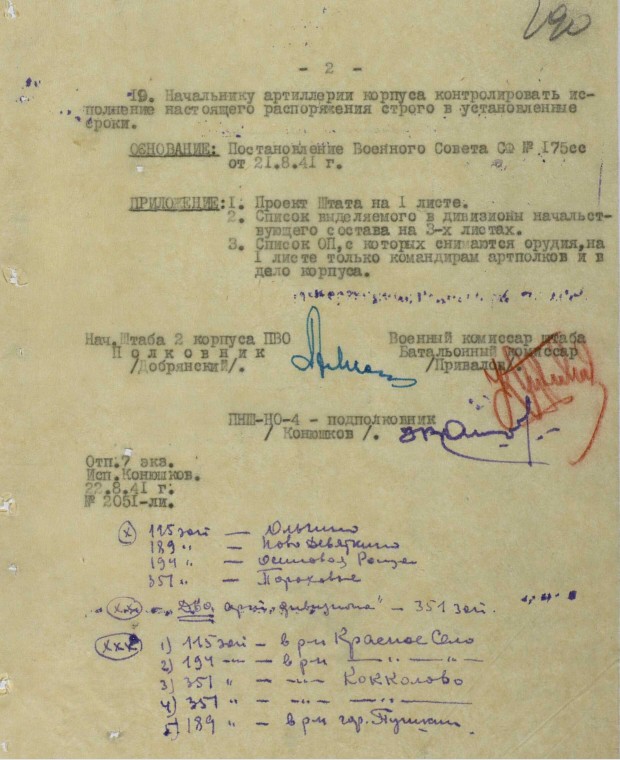 190
- 2 -
19. Начальнику артиллерии корпуса контролировать ис-
полнение настоящего распоряжения строго в установленные
сроки.
ОСНОВАНИЕ: Постановление Военного Совета СФ № 175сс
от 21.8.41 г.
ПРИЛОЖЕНИЕ: 1. Проект Штата на 1 листе.
2. Список выделяемого в дивизионы начальст-
вующего состава на 3-х листах.
3. Список ОП, с которых снимаются орудия, на
1 листе только командирам артполков и в
дело корпуса.
Нач.Штаба 2 корпуса ПВО Военный комиссар штаба
Полковник Батальонный комиссар
/Добрянский/. /Привалов/.
ПНШ-НО-4 - подполковник
/ Конюшков /.
Отп.7 экз.
Исп.Конюшков.
22.8.41 г.
№ 2051-ли.
(x) 115 зап — Ольгино
189 " — Ново Девяткино
194 " — Осиновая Роща
351 " — Пороховые
(xx) Два арт. дивизиона" - 351 зап.
(xxx) 1) 115 зап - в р-н Красное Село
2) 194 -"- - в р-н — " —
3) 351 " - -"- Кокколово
4) 351 " - -"- — " —
5) 189 " - в р-н гор. Пушкин